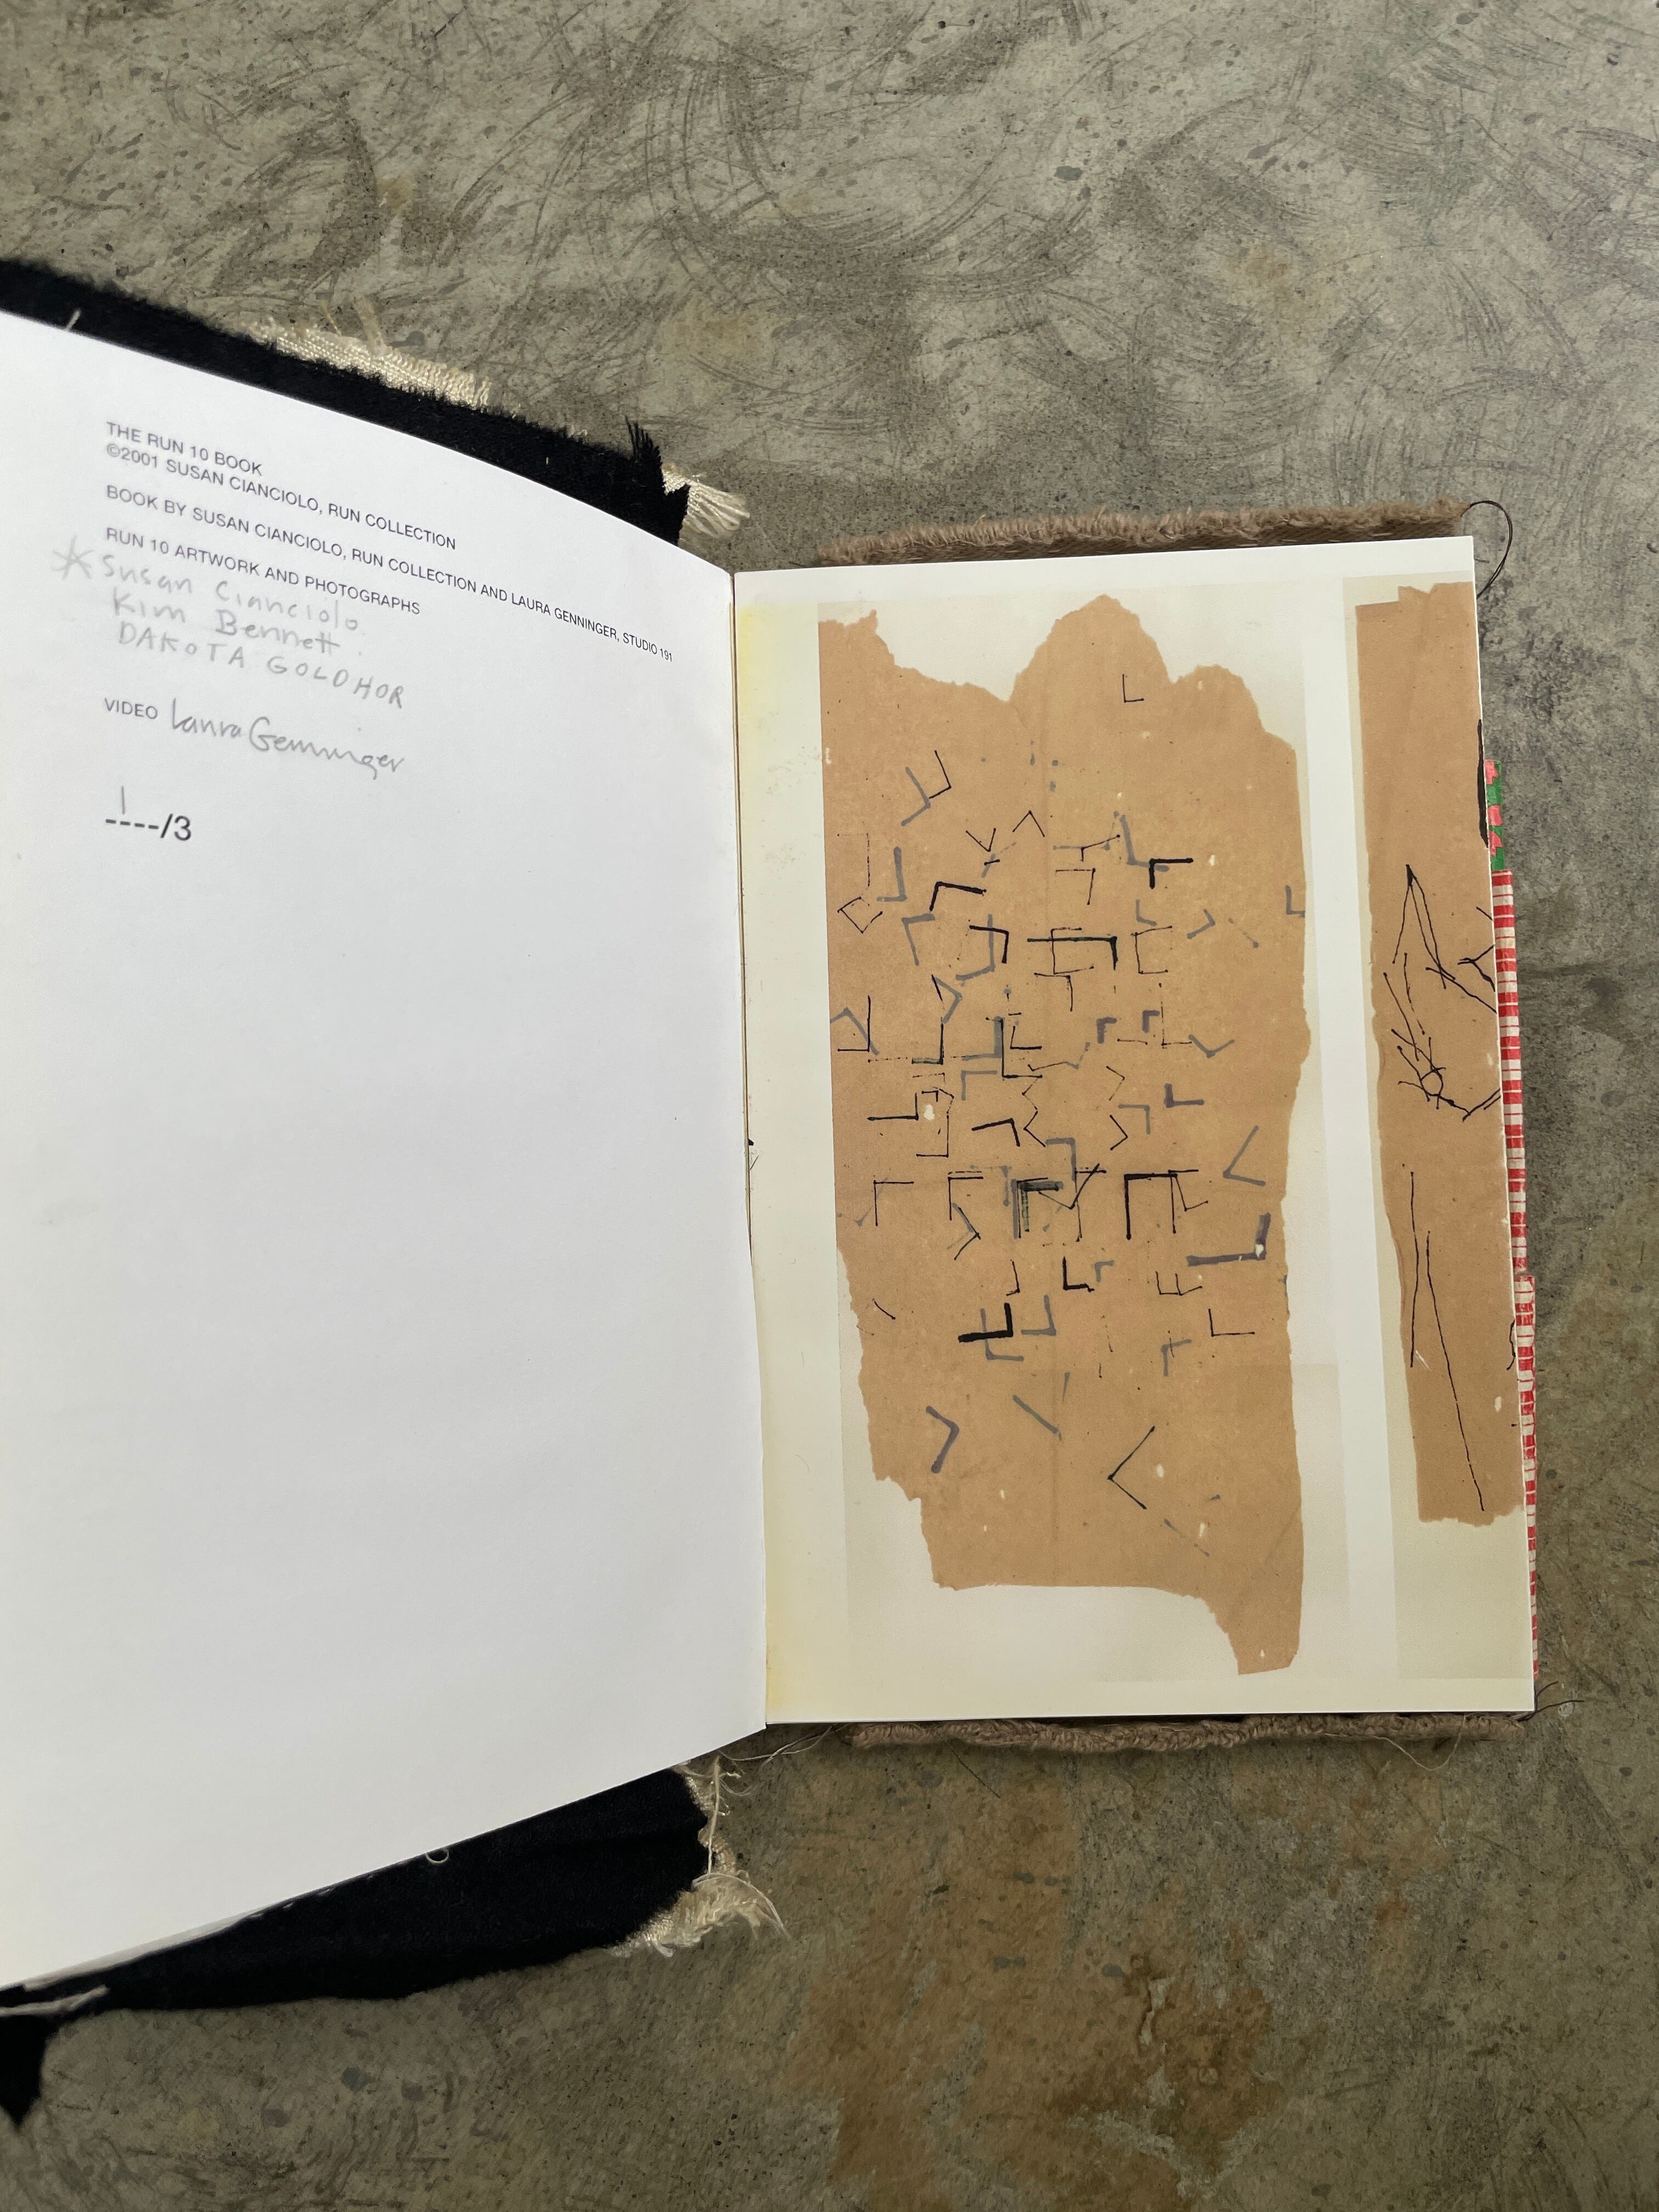 THE RUN 10 BOOK
©2001 SUSAN CIANCIOLO, RUN COLLECTION
BOOK BY SUSAN CIANCIOLO, RUN COLLECTION AND LAURA GENNINGER, STUDIO 191
RUN 10 ARTWORK AND PHOTOGRAPHS
* Susan Cianciolo
Kim Bennett
DAKOTA GOLDHOR
VIDEO Laura Genninger
1
----/3